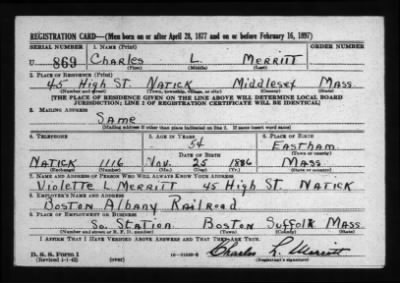 REGISTRATION CARD—(Men born on or after April 28, 1877 and on or before February 16, 1897)
SERIAL NUMBER 1. NAME (Print) ORDER NUMBER
U 869 Charles L. Merritt
(First) (Middle) (Last)
2. PLACE OF RESIDENCE (Print)
45 High St Natick Middlesex Mass
(Number and street) (Town, township, village, or city) (County) (State)
[THE PLACE OF RESIDENCE GIVEN ON THE LINE ABOVE WILL DETERMINE LOCAL BOARD
JURISDICTION; LINE 2 OF REGISTRATION CERTIFICATE WILL BE IDENTICAL]
3. MAILING ADDRESS
Same
(Mailing address if other than place indicated on line 2. If same insert word same)
4. TELEPHONE 5. AGE IN YEARS 6. PLACE OF BIRTH
54 Eastham
DATE OF BIRTH (Town or county)
Natick 1116 Nov. 25 1886 Mass.
(Exchange) (Number) (Mo.) (Day) (Yr.) (State or country)
7. NAME AND ADDRESS OF PERSON WHO WILL ALWAYS KNOW YOUR ADDRESS
Violette L. Merritt 45 High St. Natick
8. EMPLOYER'S NAME AND ADDRESS
Boston Albany Railroad
9. PLACE OF EMPLOYMENT OR BUSINESS
So. Station Boston Suffolk Mass
(Number and street or R. F. D. number) (Town) (County) (State)
I AFFIRM THAT I HAVE VERIFIED ABOVE ANSWERS AND THAT THEY ARE TRUE.
D. S. S. Form 1 Charles L. Merritt
(Revised 4-1-42) (over) (Registrant's signature)